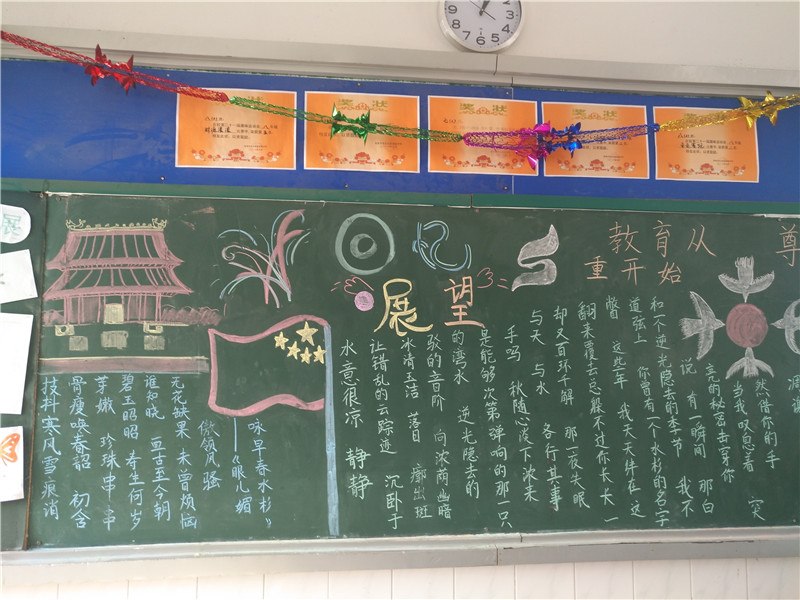 奖状
奖状
七(2)班
奖状
奖状
奖状
回忆
展望
教育从
尊
重开始
枝抖寒风雪痕消
骨瘦唤春韶 初含
芽嫩 珍珠串串
碧玉昭昭 寿生何岁
谁知晓 亘古至今朝
无花缺果 未曾烦恼
微领风骚
——《眼儿媚
咏早春水杉》
水 意很凉 静静
让错乱的云踪迹 沉卧于
冰清玉洁 落日 廓出斑
驳的音阶 向浓两幽暗
的湾水 逆光隐去的
是能够次第弹响的那一只
手吗 秋随心淡下浓来
与天 与水 各行其事
却又百环千解 那一夜失眠
翻来覆去总躲不过你长长一
瞥 这些年 我天天伴在这
道弦上 你曾有一个水杉的名字
和一个逆光隐去的季节 我不
说 有一瞬间 那白
亮的秘密击穿你
当我叹息着 突
然借你的手
凋谢